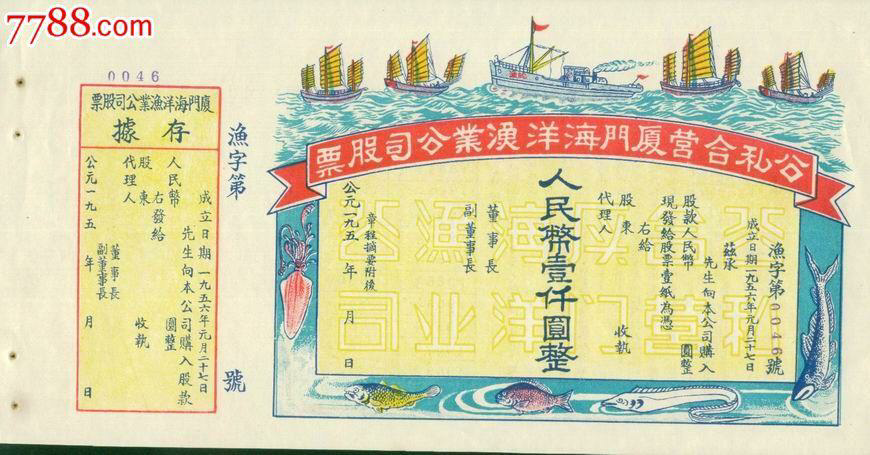 7788.com
0046
厦門海洋漁業公司股票
存據
成立日期一九五六年元月二十七日
先生向本公司購入股款
人民幣 圓整
右發給
股東
代理人 收執
董事長
副董事長
公元一九五 年 月 日
漁字第 號
公私合营厦門海洋漁業公司股票
漁字第0046號
成立日期一九五六年元月二十七日
茲承
先生向本公司購入
股款人民幣 圓整
現發給股票壹紙為憑
右給
股東
代理人 收執
人民幣壹仟圓整
董事長
副董事長
章程摘要附後
公元一九五 年 月 日